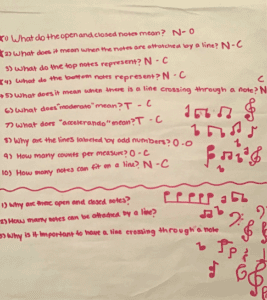 *1) What do the open and closed notes mean? N-O
*2) What does it mean when the notes are attatched by a line? N-C
3) What do the top notes represent? N-C
*4) What do the bottom notes represent? N-C
C
*5) What does it mean when there is a line crossing through a note? N
6) What does "moderato" mean? T - C
7) What does "accelerando" mean? T - C
8) Why are the lines labeled by odd numbers? O-O
9) How many counts per measure? O-C
10) How many notes can fit on a line? N-C
1) Why are there open and closed notes?
2) How many notes can be attached by a line?
3) Why is it important to have a line crossing through a note